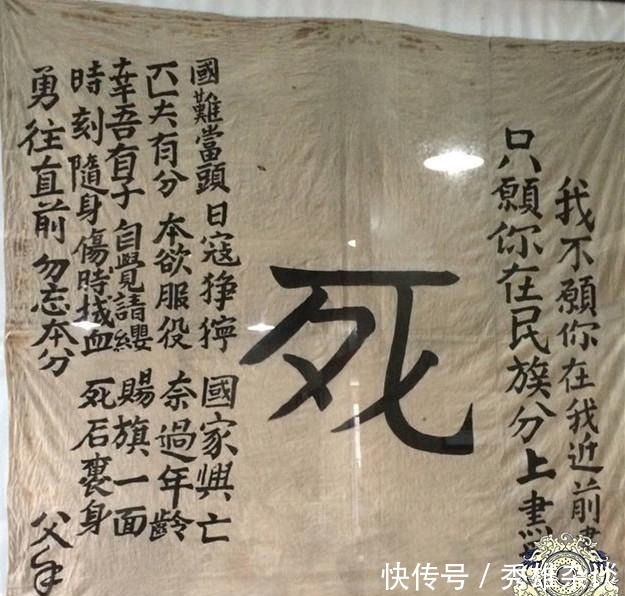 我不願你在我近前
只願你在民族分上
死
國難當頭 日寇猙獰 國家興亡
匹夫有分 本欲服役 奈過年齡
幸吾有子 自覺請纓 賜旗一面
時刻隨身 傷時拭血 死石裹身
勇往直前 勿忘本分
父手
快传号 / 秀雄杂谈